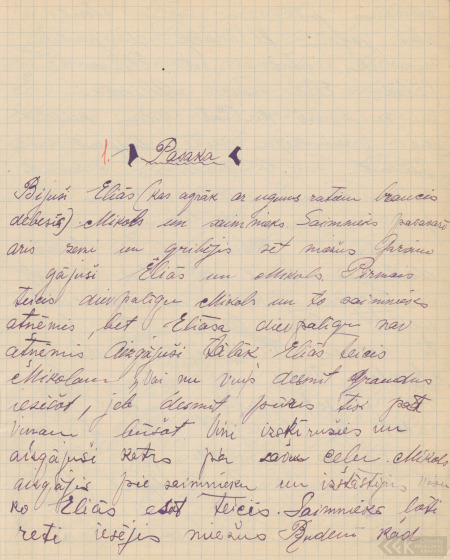 1. Pasaka
Bijuši Eliās (kas agrāk ar uguns ratam braucis
debesīs) Mikols un saimnieks. Saimnieks pavasarī
aris zemi un gribējis sēt miežus
gājuši Eliās un Mikols. Pirmais
teicis dievpalīgu Mikols un to saimnieks
atņēmis, bet Eliāsa dievpalīgu nav
atņēmis Aizgājuši tālāk Eliās teicis
Mikolam, "Vai nu viņš desmit graudus
iesēšot, jeb desmit pūrus tos pat
vienam būšot Viņi izšķīrušies un
aizgājuši katrs pa savu ceļu. Mikols
aizgājis pie saimnieka un izstāstījis visu
ko Eliās teicis. Saimnieks ļoti
reti iesējis miežus Rudenī kad